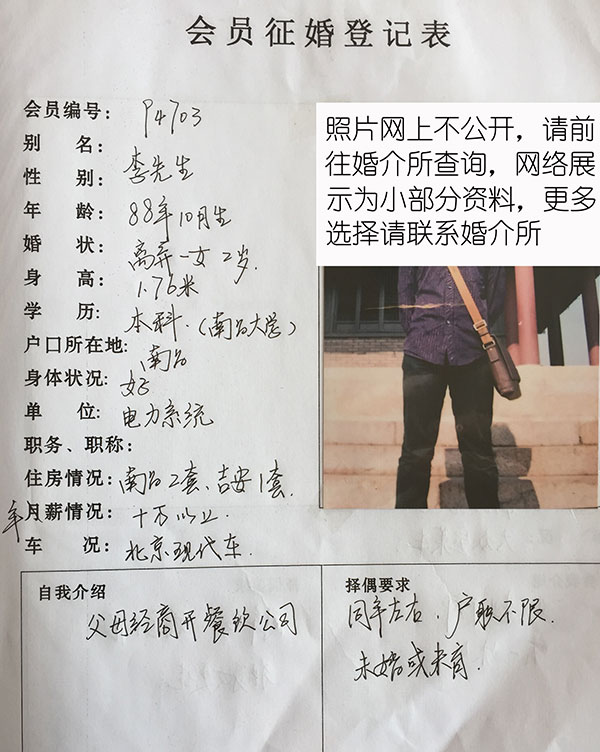 会员征婚登记表
会员编号: P4703
别 名: 李先生
性 别:
年 龄: 88年10月生
婚 状: 离弄一女 2岁.
身 高: 1.76米
学 历: 本科.(南昌大学)
户口所在地: 南昌
身体状况: 好
单 位: 电力系统
职务、职称:
住房情况: 南昌2套、吉安1套.
年月薪情况: 十万以上.
车 况: 北京现代车.
照片网上不公开，请前
往婚介所查询，网络展
示为小部分资料，更多
选择请联系婚介所
自我介绍
父母经商开餐饮公司
择偶要求
同年左右、户职不限.
未婚或未育.